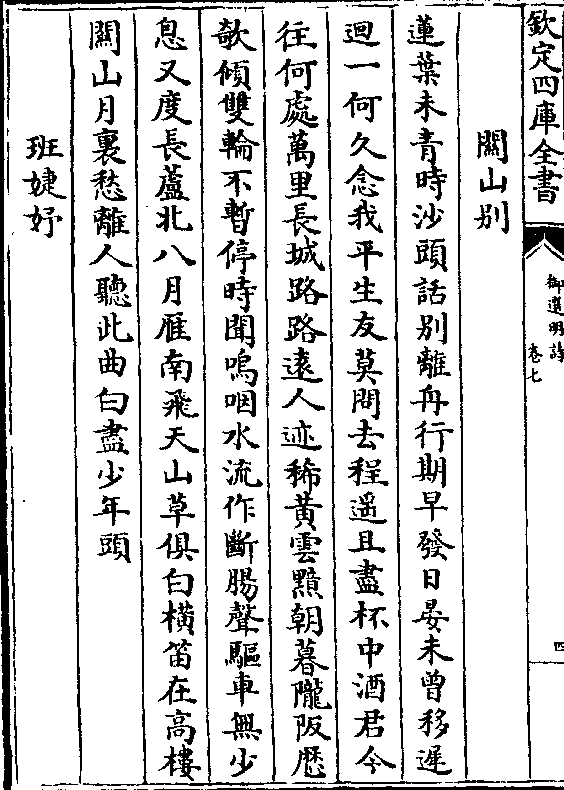 欽定四庫全書
御選明詩
卷七
四
關山别
蓮葉未青時沙頭話别離舟行期早發日晏未曽移遲
迴一何久念我平生友莫問去程遥且盡杯中酒君今
往何處萬里長城路路逺人迹稀黄雲黯朝暮隴阪歴
欹傾雙輪不暫停時聞嗚咽水流作斷腸聲驅車無少
息又度長蘆北八月雁南飛天山草俱白横笛在髙樓
關山月裏愁離人聽此曲白盡少年頭
班婕妤